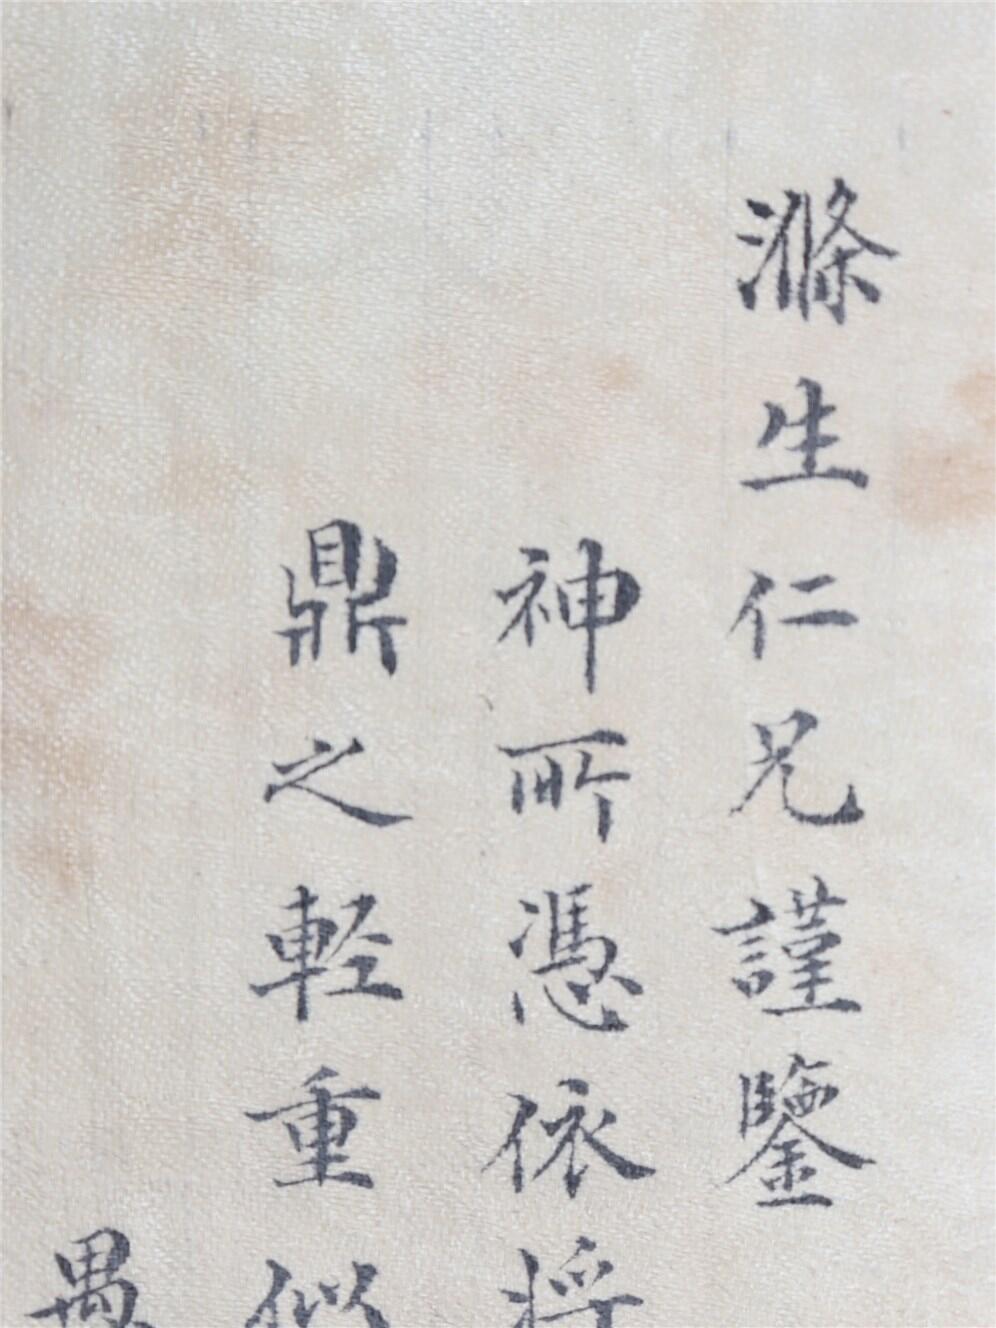 滌生仁兄謹鑒
神所憑依將
鼎之輕重似
愚